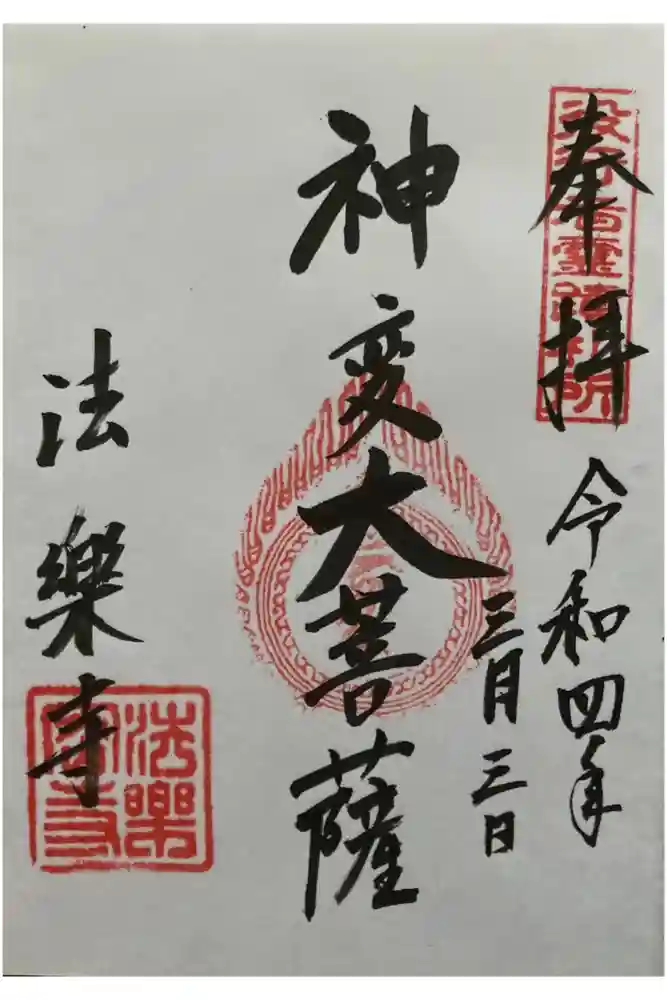 奉拝
役行者霊蹟札所
令和四年
三月三日
神変大菩薩
法樂寺
法樂寺